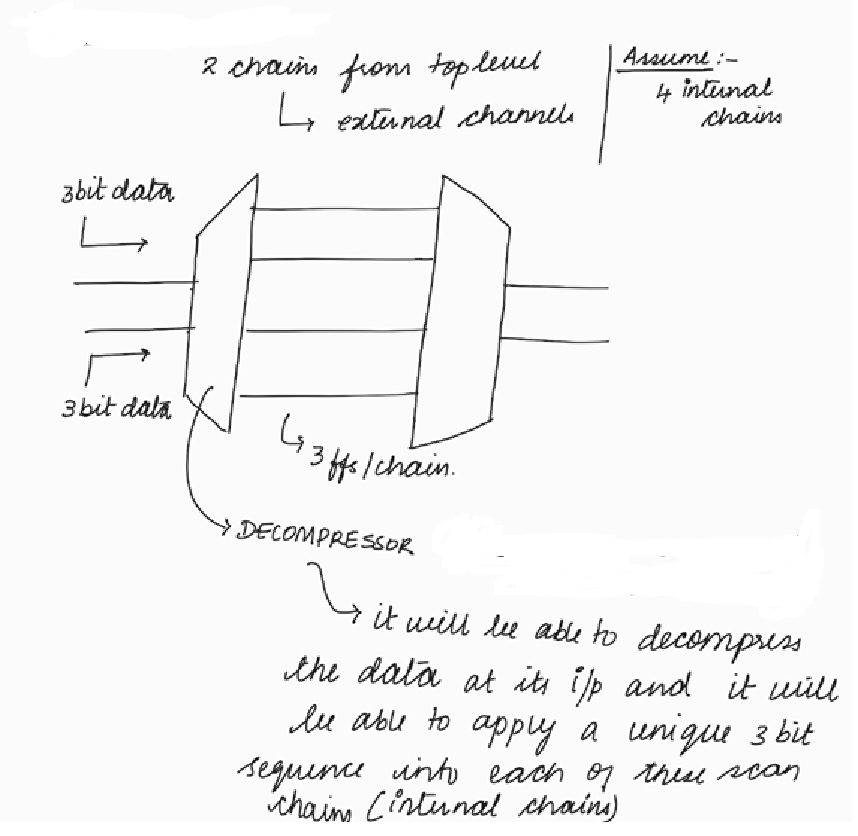 2 chains from toplevel
↳ external channels
Assume :-
4 internal
chains
3bit data
3bit data
3 ffs/chain.
DECOMPRESSOR
it will be able to decompress
the data at its i/p and it will
be able to apply a unique 3 bit
sequence into each of these scan
chains (internal chains)